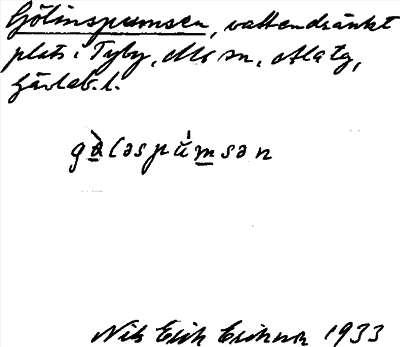 Gölinspumsen, vattendränkt
plats i Tyby, Mo sn, Ala tg,
Gävleb. l.
gö̀ləspúmsən
Nils Erik Eriksson 1933